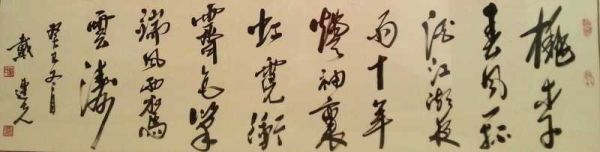 桃李
春風一杯
酒江湖夜
雨十年
燈袖裏
虹霓衝
霽色筆
端風雨駕
雲濤
癸巳冬月
戴建光